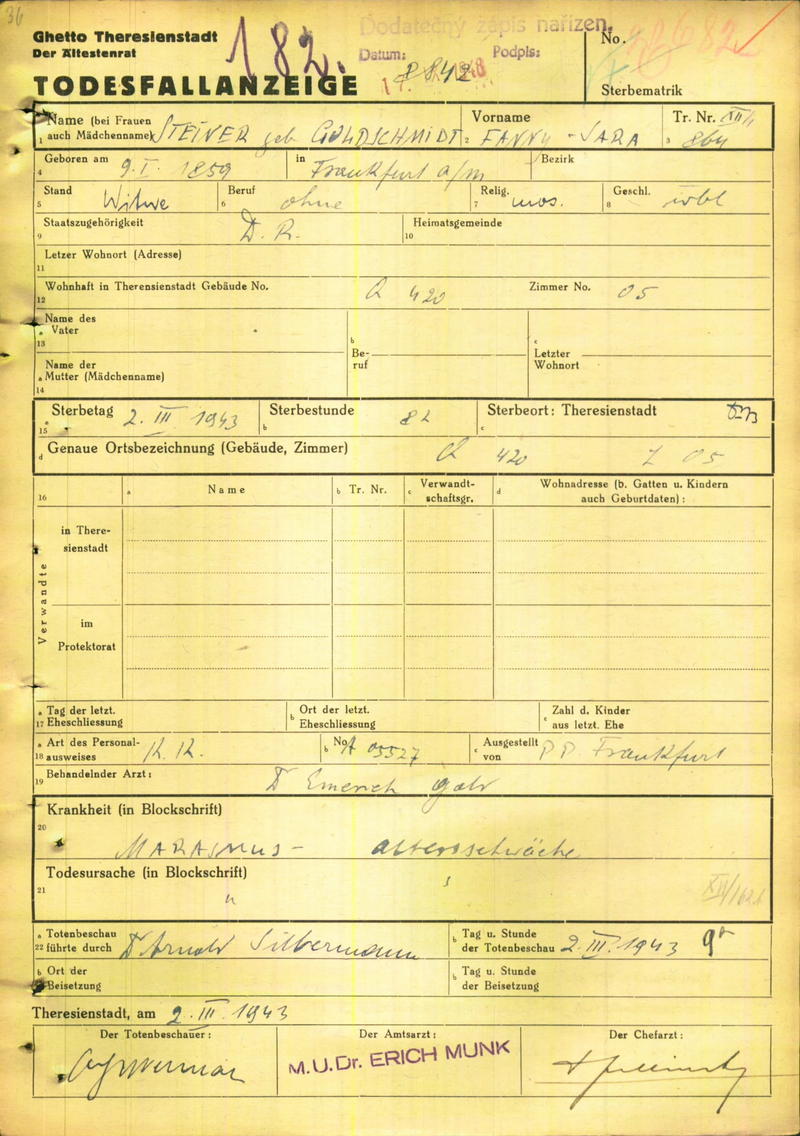 36
Ghetto Theresienstadt
Der Ältestenrat
TODESFALLANZEIGE
182.
Dodatečný zápis nařízen.
Datum: Podpis:
8842
No.
Sterbematrik
Name (bei Frauen auch Mädchenname) STEINER geb GOLDSCHMIDT
1
Vorname FANNY - SARA
2
Tr. Nr. XII/1
3 864
Geboren am 9. I. 1859 in Frankfurt a/m Bezirk
4
Stand Witwe Beruf ohne Relig. mos. Geschl. wbl
5 6 7 8
Staatszugehörigkeit D. R. Heimatsgemeinde
9 10
Letzer Wohnort (Adresse)
11
Wohnhaft in Theresienstadt Gebäude No. Q 420 Zimmer No. 05
12
a Name des Vater
13
b Beruf
c Letzter Wohnort
a Name der Mutter (Mädchenname)
14
a Sterbetag 2. III 1943 b Sterbestunde 8h c Sterbeort: Theresienstadt
15
d Genaue Ortsbezeichnung (Gebäude, Zimmer) Q 420 Z 05
16 a Name b Tr. Nr. c Verwandtschaftsgr. d Wohnadresse (b. Gatten u. Kindern auch Geburtdaten):
Verwandte
in Theresienstadt
im Protektorat
17 a Tag der letzt. Eheschliessung b Ort der letzt. Eheschliessung c Zahl d. Kinder aus letzt. Ehe
18 a Art des Personalausweises K. K. b No. A 05527 c Ausgestellt von P.P. Frankfurt
19 Behandelnder Arzt: Dr Emerich
Krankheit (in Blockschrift)
20
MARASMUS - Altersschwäche
Todesursache (in Blockschrift)
21
"
22 a Totenbeschau führte durch Dr Arnold Silbermann b Tag u. Stunde der Totenbeschau 2. III. 1943 9h
b Ort der Beisetzung b Tag u. Stunde der Beisetzung
Theresienstadt, am 2. III. 1943
Der Totenbeschauer: Der Amtsarzt: Der Chefarzt:
M.U.Dr. ERICH MUNK